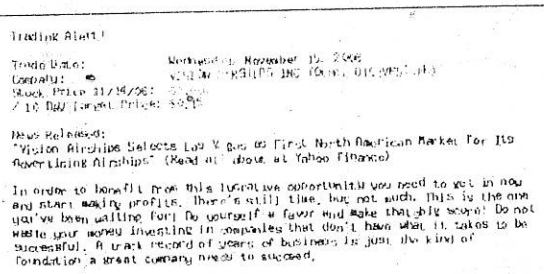 Trading Alert!
Trade Date: Wednesday, November 15, 2006
Company: VISION AIRSHIPS INC
Stock Price 11/14/06:
10 Day Target Price:
News Released:
"Vision Airships Selects Las V gas as First North American Market For Its
Advertising Airships" (Read all about at Yahoo Finance)
In order to benefit from this lucrative opportunity you need to get in now
and start making profits. There's still time, but not much. This is the one
you've been waiting for! Do yourself a favor and make that big score! Do not
waste your money investing in companies that don't have what it takes to be
successful. A track record of years of business is just the kind of
foundation a great company needs to succeed.